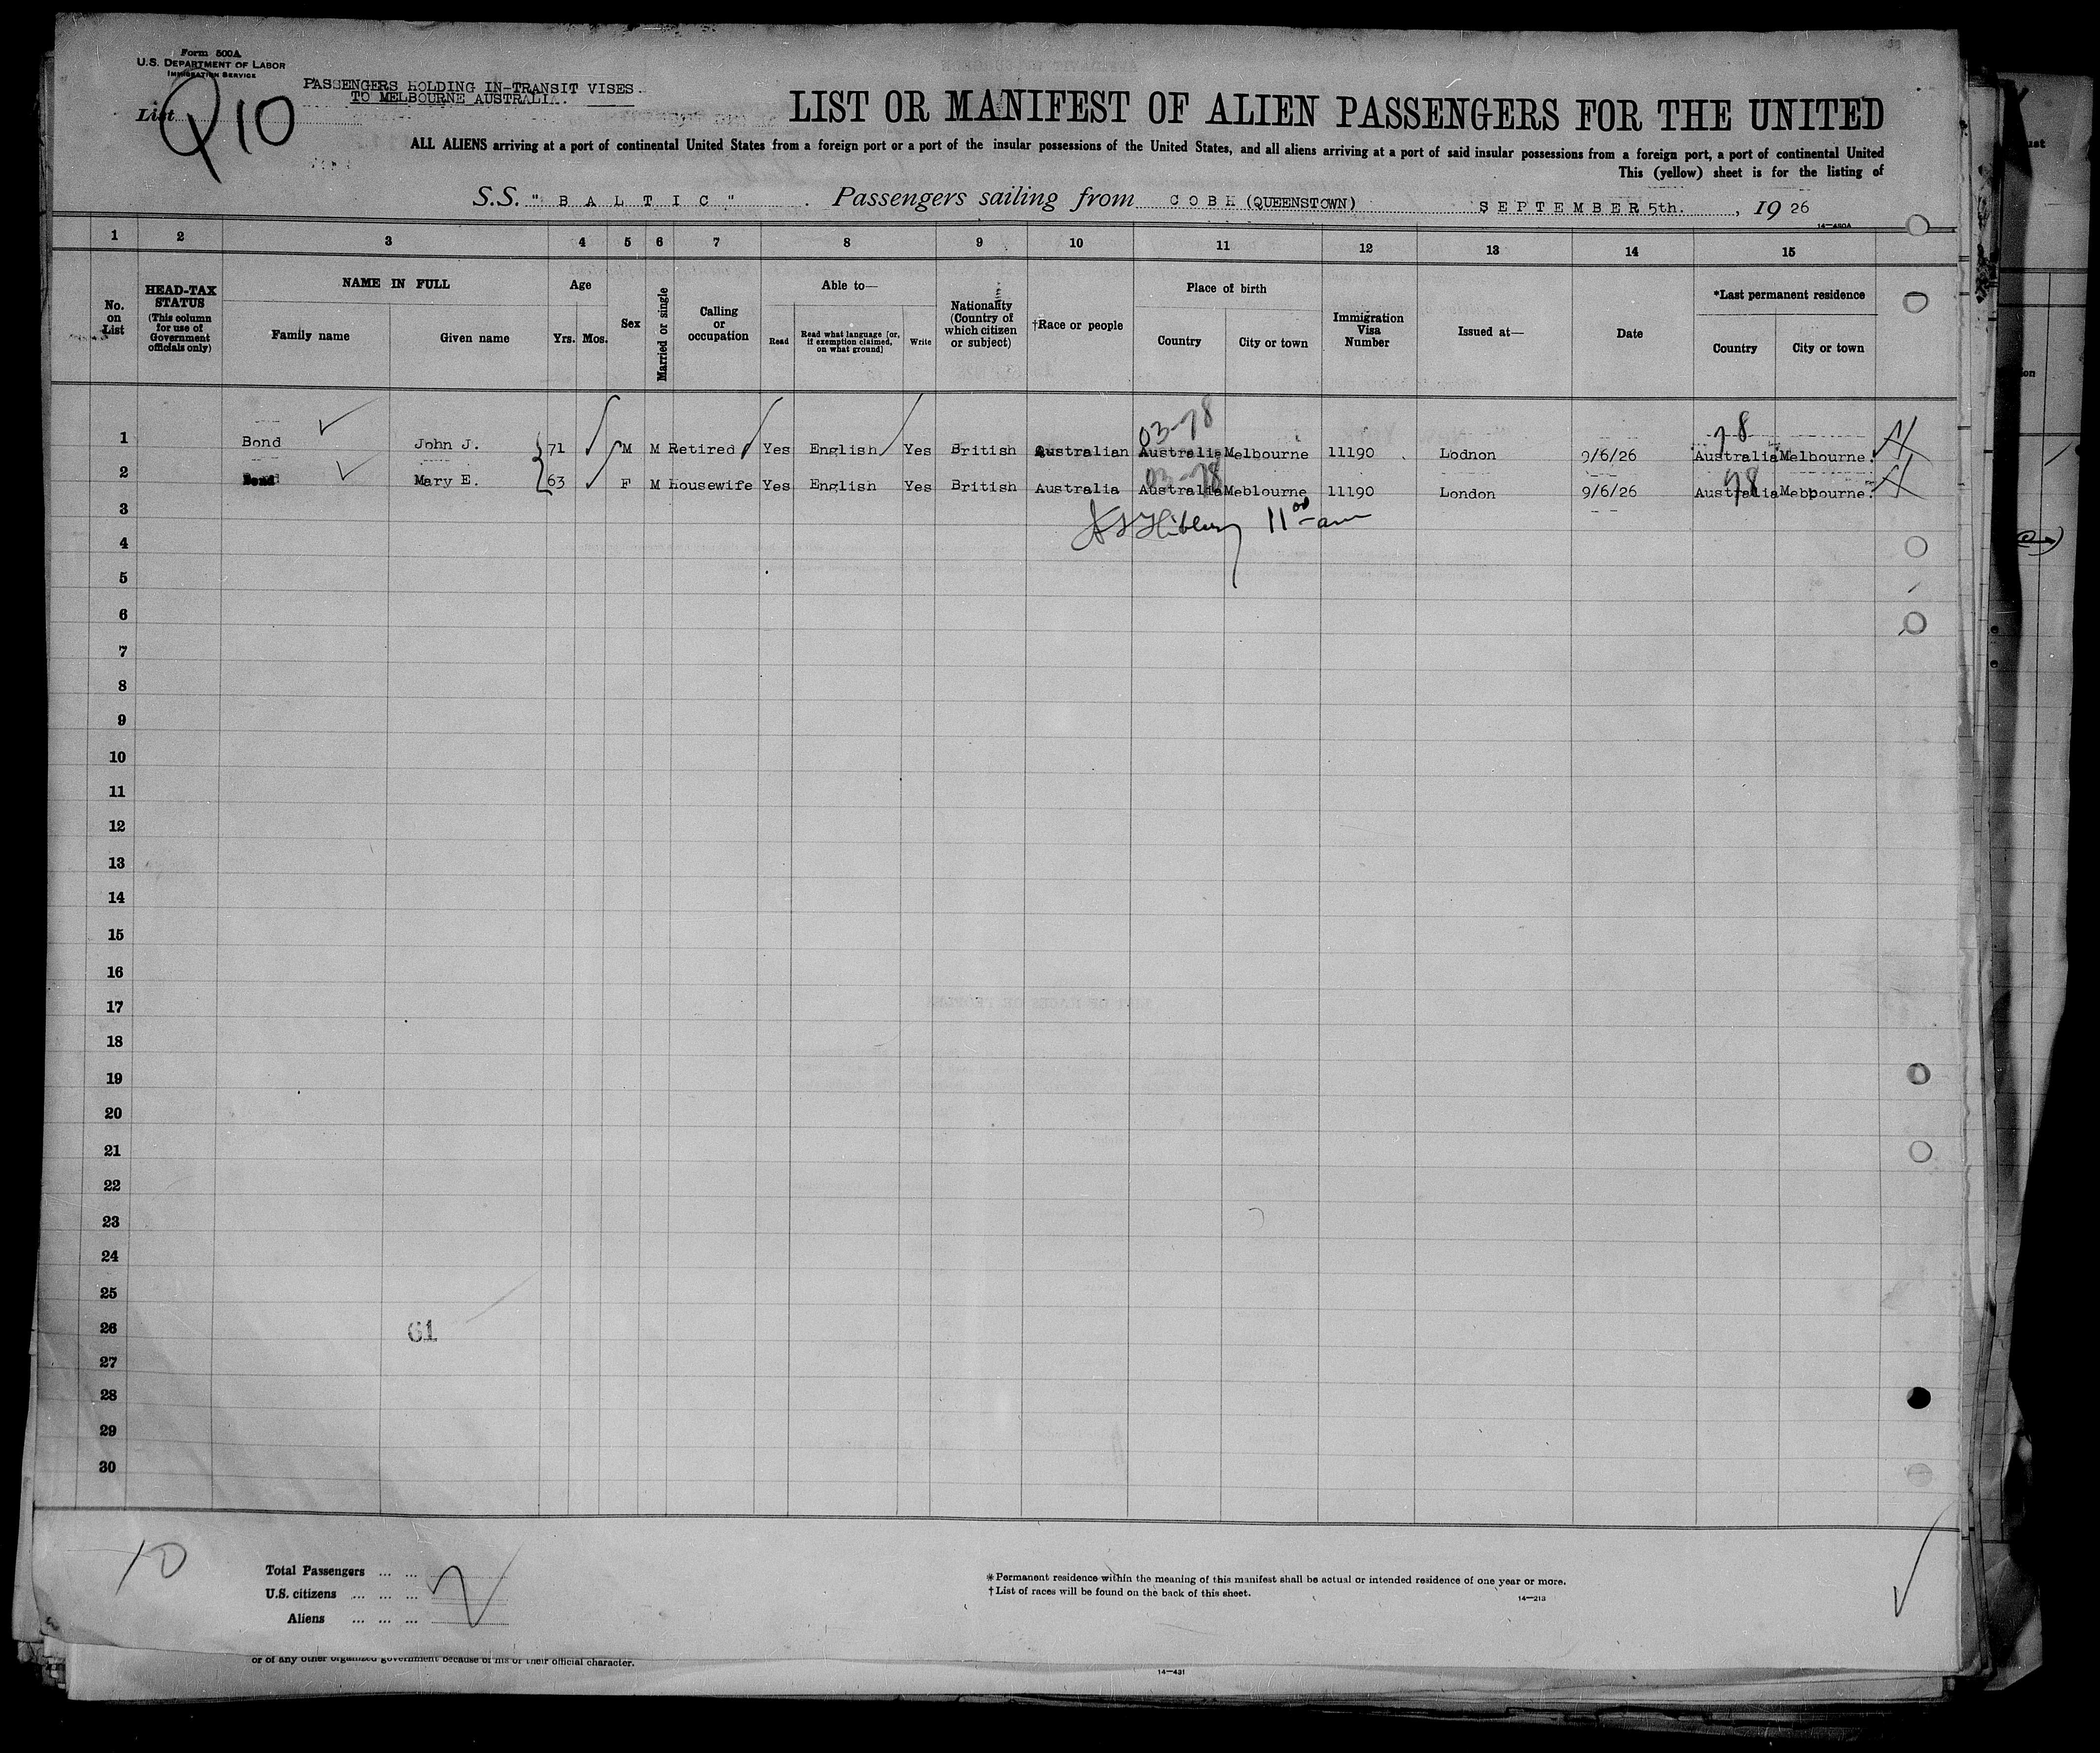 Form 500A
U.S. DEPARTMENT OF LABOR
IMMIGRATION SERVICE
PASSENGERS HOLDING IN-TRANSIT VISES.
TO MELBOURNE AUSTRALIA.
List
Q10
LIST OR MANIFEST OF ALIEN PASSENGERS FOR THE UNITED
ALL ALIENS arriving at a port of continental United States from a foreign port or a port of the insular possessions of the United States, and all aliens arriving at a port of said insular possessions from a foreign port, a port of continental United
This (yellow) sheet is for the listing of
S.S. "BALTIC". Passengers sailing from COBH (QUEENSTOWN) SEPTEMBER 5th., 1926
14—480A
1 2 3 4 5 6 7 8 9 10 11 12 13 14 15
No. on List
HEAD-TAX STATUS (This column for use of Government officials only)
NAME IN FULL
Family name Given name
Age
Yrs. Mos.
Sex
Married or single
Calling or occupation
Able to—
Read Read what language [or, if exemption claimed, on what ground] Write
Nationality (Country of which citizen or subject)
†Race or people
Place of birth
Country City or town
Immigration Visa Number
Issued at—
Date
*Last permanent residence
Country City or town
03-78 78
1 Bond John J. 71 M M Retired Yes English Yes British Australian Australia Melbourne 11190 Lodnon 9/6/26 Australia Melbourne.
03-78 78
2 Bond Mary E. 63 F M Housewife Yes English Yes British Australia Australia Meblourne 11190 London 9/6/26 Australia Mebpourne.
3
11 00 am
4
5
6
7
8
9
10
11
12
13
14
15
16
17
18
19
20
21
22
23
24
25
26
61
27
28
29
30
10
Total Passengers ... ...
U.S. citizens ... ... ...
Aliens ... ... ...
2
*Permanent residence within the meaning of this manifest shall be actual or intended residence of one year or more.
†List of races will be found on the back of this sheet.
14—213
or of any other organized government because of his or their official character.
14—431